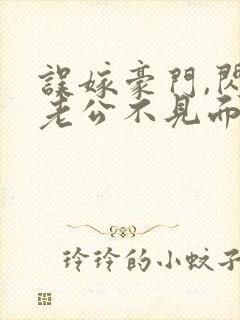 誤嫁豪門,閃
老公不見面
玲玲的小蚊子